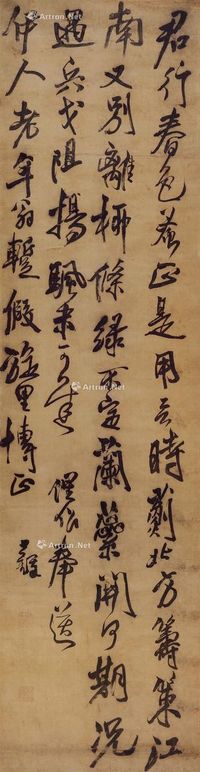 君行春色正是用時薊北方籌策江
南又別離柳條綠不定蘭蘂開何期況
過兵戈阻揚颿未可遲 俚作奉送
伊人老年翁蹔假旋里博正 王鐸
Artron.Net
Artron.Net
Artron.Net